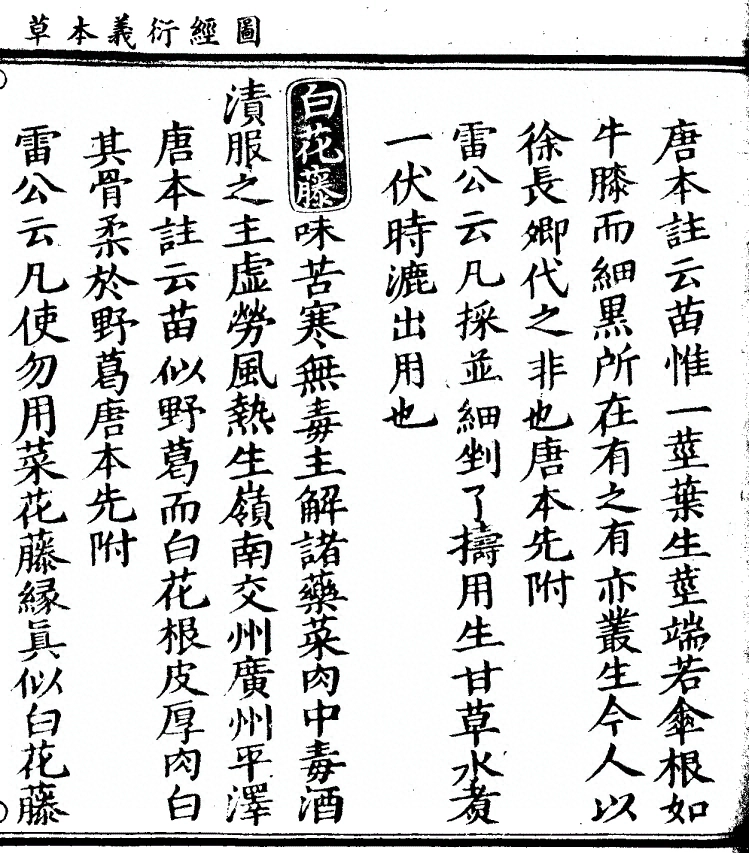 圖經衍義本草
唐本註云苗惟一莖葉生莖端若傘根如
牛膝而細黒所在有之有亦叢生今人以
徐長卿代之非也唐本先附
雷公云凡採並細剉了擣用生甘草水煑
一伏時漉出用也
白花藤味苦寒無毒主解諸藥菜肉中毒酒
漬服之主虚勞風熱生嶺南交州廣州平澤
唐本註云苗似野葛而白花根皮厚肉白
其骨柔於野葛唐本先附
雷公云凡使勿用菜花藤緣眞似白花藤